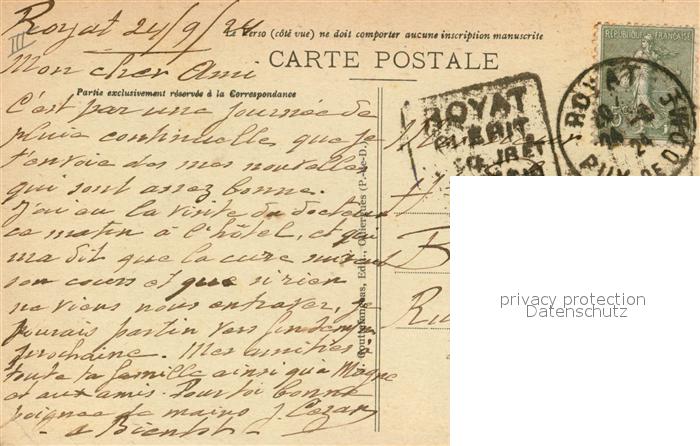 Royat 24/9/24
Le Verso (côté vue) ne doit comporter aucune inscription manuscrite
CARTE POSTALE
Mon cher Ami
Partie exclusivement réservée à la Correspondance
C'est par une journée de
pluie continuelles que je
t'envoie des mes nouvelles
qui sont assez bonne.
J'ai eu la visite du docteur
ce matin à l'hôtel, et qui
m'a dit que la cure suivait
son cours et que si rien
ne viens nous entraver, je
pourais partir vers fin semaine
prochaine. Mes amitiés à
toute ta famille ainsi que
et aux amis. Pour toi bonne
poignée de mains J.
a Bientot
Édit., (P.-de-D.)
ROYAT
GUÉRIT
CŒUR ET
RÉPUBLIQUE FRANÇAISE
ROYAT
24
PUY DE DOME
privacy protection
Datenschutz